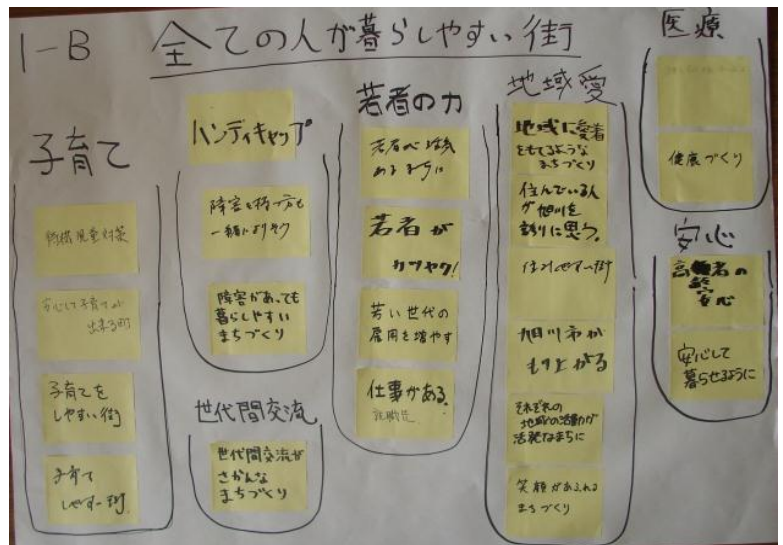 1-B 全ての人が暮らしやすい街
子育て
待機児童対策
安心して子育てが
出来る町
子育てを
しやすい街
子育て
しやすい街
ハンディキャップ
障害を持つ方も
一緒に
障害があっても
暮らしやすい
まちづくり
世代間交流
世代間交流が
さかんな
まちづくり
若者の力
若者に
あるまちに
若者が
カツヤク!
若い世代の
雇用を増やす
仕事がある。
就職先
地域愛
地域に愛着
をもてるような
まちづくり
住んでいる人
が旭川を
誇りに思う。
住みやすい街
旭川市が
もり上がる
それぞれの
地域の活動が
活発なまちに
笑顔があふれる
まちづくり
医療
健康づくり
安心
高齢者の
安心
安心して
暮らせるように